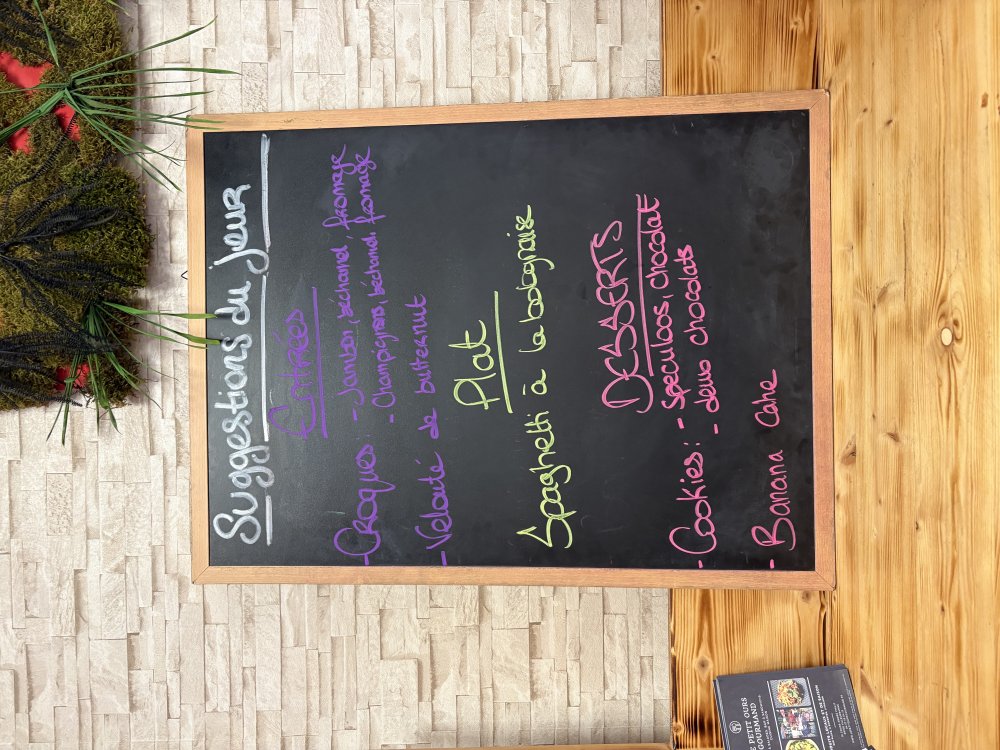 Suggestions du jour
Entrées
- Croques - Jambon, béchamel, fromage
- Champignons, béchamel, fromage
- Velouté de butternut
Plat
Spaghetti à la bolognaise
DESSERTS
- Cookies : - Speculoos, chocolat
- deux chocolats
- Banana Cake
PETIT OURS
GOURMAND